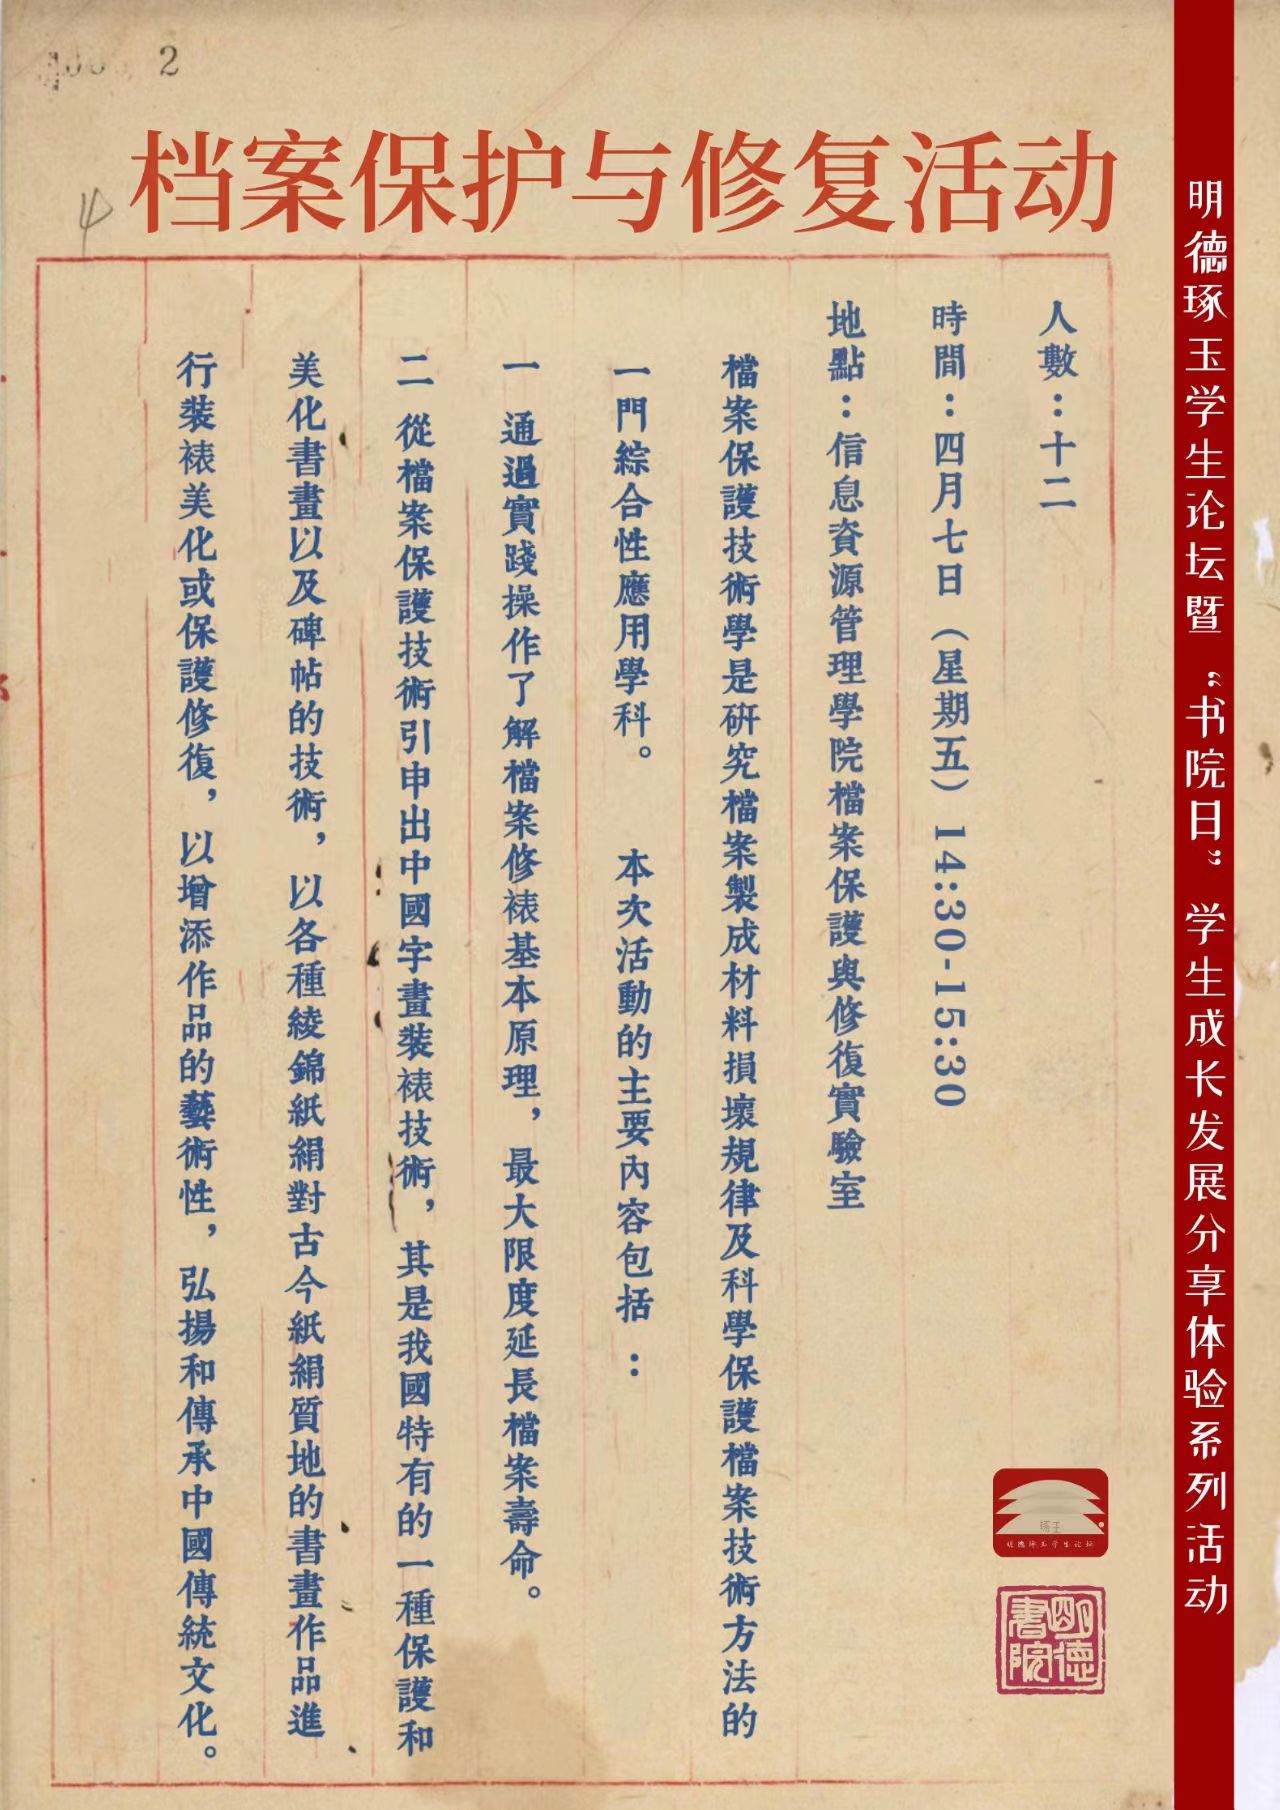 2
档案保护与修复活动
人數：十二
時間：四月七日（星期五）14:30-15:30
地點：信息資源管理學院檔案保護與修復實驗室
檔案保護技術學是研究檔案製成材料損壞規律及科學保護檔案技術方法的
一門綜合性應用學科。 本次活動的主要內容包括：
一 通過實踐操作了解檔案修裱基本原理，最大限度延長檔案壽命。
二 從檔案保護技術引申出中國字畫裝裱技術，其是我國特有的一種保護和
美化書畫以及碑帖的技術，以各種綾錦紙絹對古今紙絹質地的書畫作品進
行裝裱美化或保護修復，以增添作品的藝術性，弘揚和傳承中國傳統文化。
明德琢玉学生论坛暨“书院日”学生成长发展分享体验系列活动
琢玉
明德琢玉学生论坛
明德書院